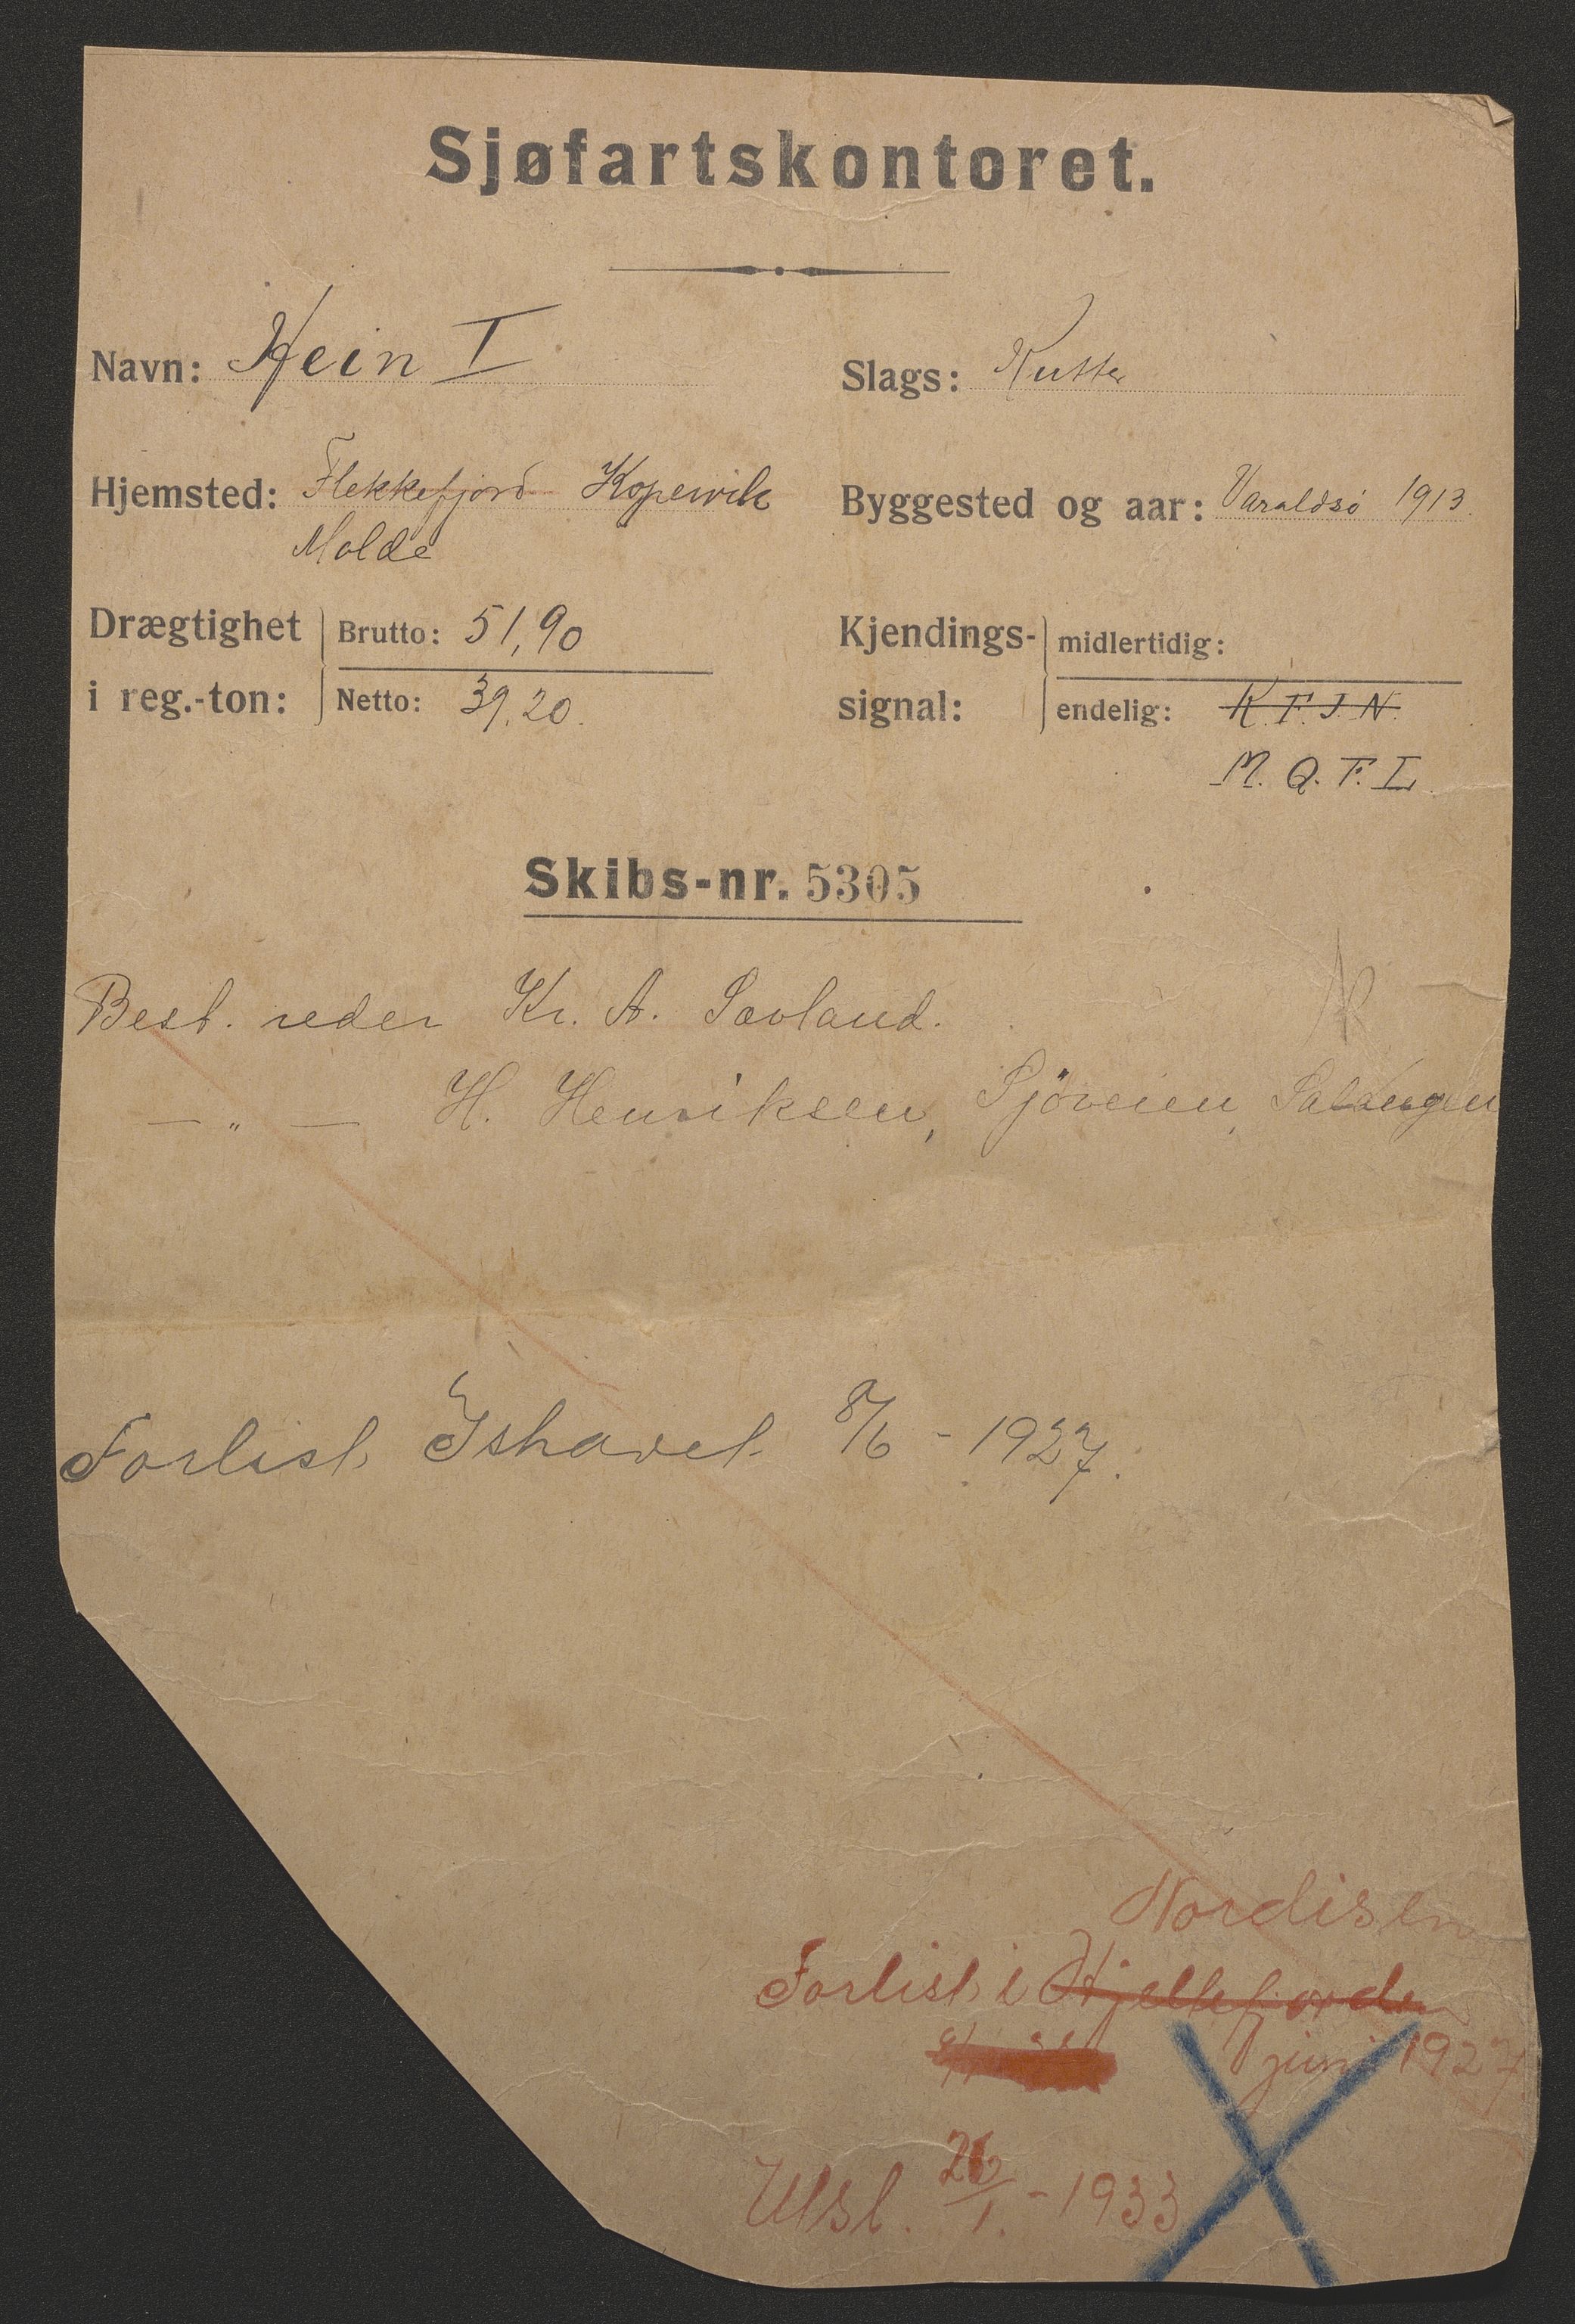 Sjøfartskontoret.
Navn: Hein I
Slags: Kutter
Hjemsted: Flekkefjord Kopervik
Molde
Byggested og aar: Varaldsö 1913
Drægtighet i reg.-ton: Brutto: 51,90
Netto: 39,20.
Kjendings-signal: midlertidig:
endelig: K.F.J.N.
M.Q.F.L.
Skibs-nr. 5305
Best. reder Kr. A. Sævland.
— " — H. Henriksen, Sjöveien, Salangen
Forlist Ishavet 8/6 - 1927.
Nordisen
Forlist i Hjeltefjorden
juni 1927
Utsl. 26/1. - 1933